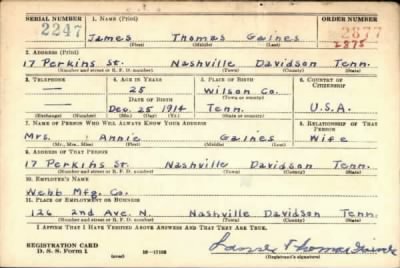 SERIAL NUMBER 1. NAME (Print) ORDER NUMBER
2247 James Thomas Gaines 2877
(First) (Middle) (Last) 2875
2. ADDRESS (Print)
17 Perkins St. Nashville Davidson Tenn.
(Number and street or R. F. D. number) (Town) (County) (State)
3. TELEPHONE 4. AGE IN YEARS 5. PLACE OF BIRTH 6. COUNTRY OF CITIZENSHIP
— 25 Wilson Co.
DATE OF BIRTH (Town or county)
— Dec. 25 1914 Tenn. U.S.A.
(Exchange) (Number) (Mo.) (Day) (Yr.) (State or country)
7. NAME OF PERSON WHO WILL ALWAYS KNOW YOUR ADDRESS 8. RELATIONSHIP OF THAT PERSON
Mrs. Annie Gaines Wife
(Mr., Mrs., Miss) (First) (Middle) (Last)
9. ADDRESS OF THAT PERSON
17 Perkins St. Nashville Davidson Tenn.
(Number and street or R. F. D. number) (Town) (County) (State)
10. EMPLOYER'S NAME
Webb Mfg. Co.
11. PLACE OF EMPLOYMENT OR BUSINESS
126 2nd Ave. N. Nashville Davidson Tenn.
(Number and street or R. F. D. number) (Town) (County) (State)
I AFFIRM THAT I HAVE VERIFIED ABOVE ANSWERS AND THAT THEY ARE TRUE.
REGISTRATION CARD James Thomas Gaines
D. S. S. Form 1 (over) (Registrant's signature)